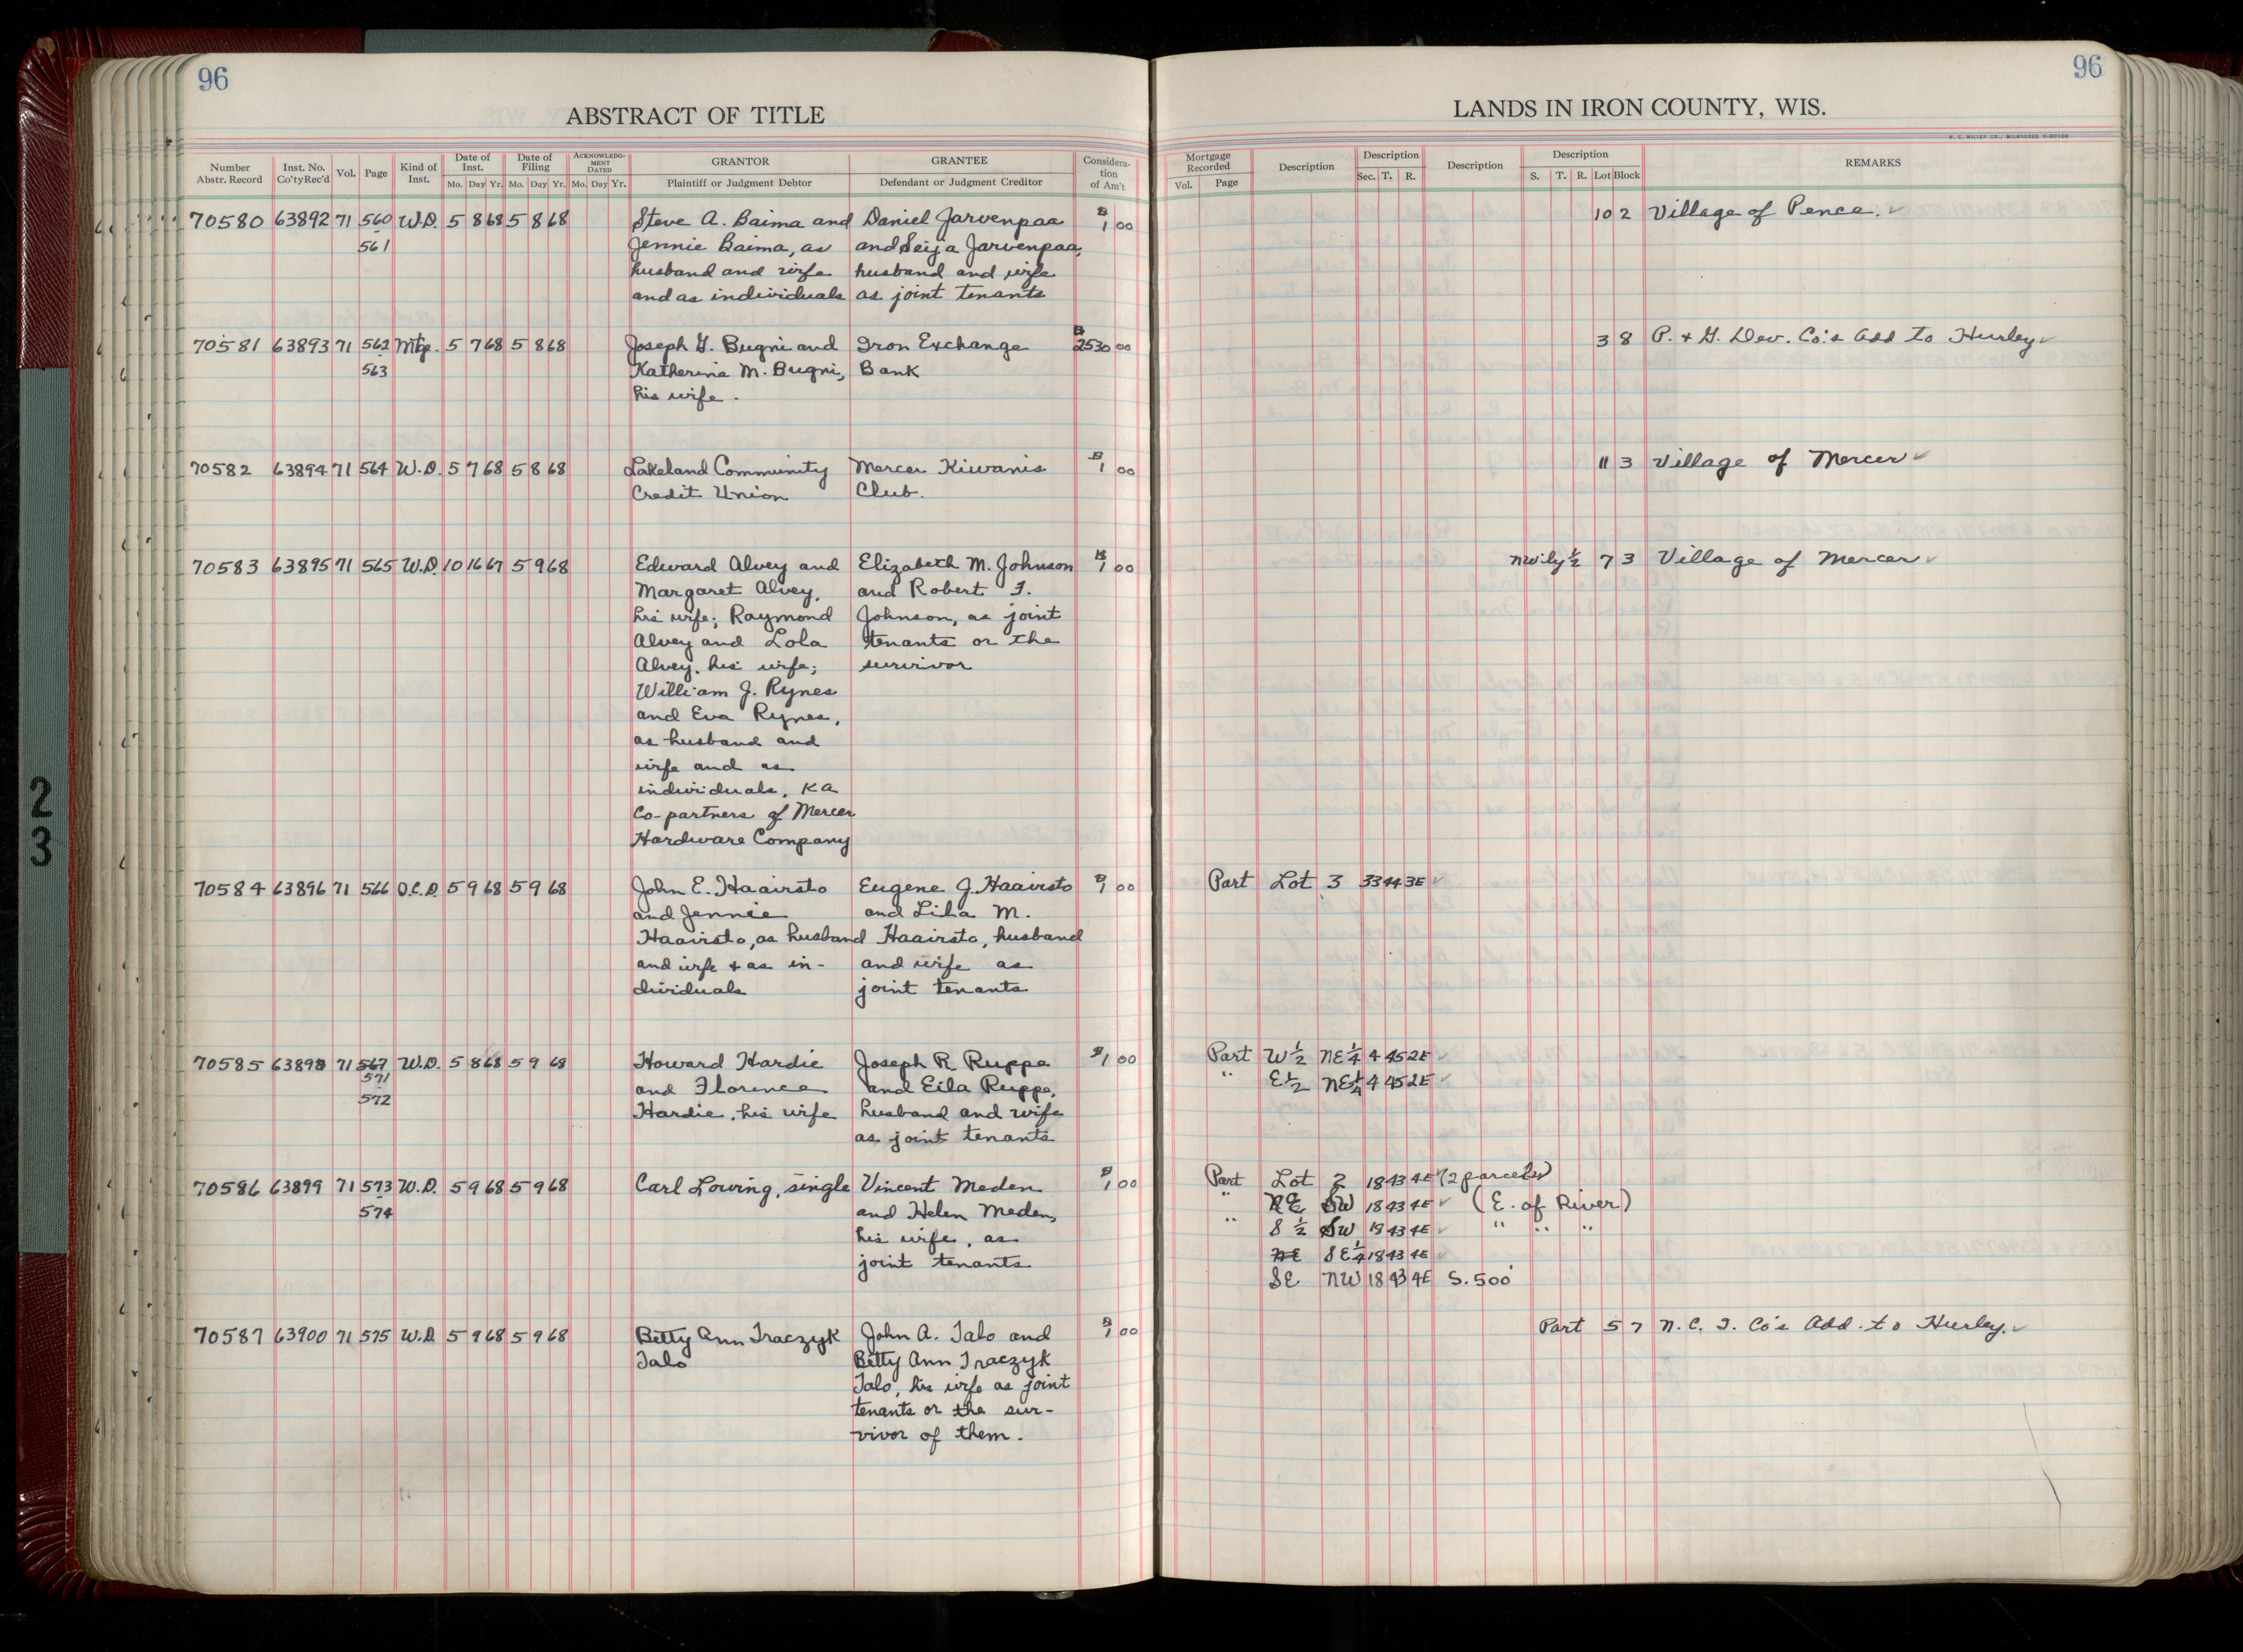 96
96
ABSTRACT OF TITLE
LANDS IN IRON COUNTY, WIS.
H. C. MILLER CO., MILWAUKEE
Number Abstr. Record | Inst. No. Co'ty Rec'd | Vol. | Page | Kind of Inst. | Date of Inst. Mo. Day Yr. | Date of Filing Mo. Day Yr. | ACKNOWLEDGMENT DATED Mo. Day Yr. | GRANTOR Plaintiff or Judgment Debtor | GRANTEE Defendant or Judgment Creditor | Consideration of Am't
Mortgage Recorded Vol. Page | Description | Description Sec. T. R. | Description | Description S. T. R. Lot Block | REMARKS
70580 63892 71 560 W.D. 5 8 68 5 8 68 Steve A. Baima and Daniel Jarvenpaa $1 00 10 2 Village of Pence.
561 Jennie Baima, as and Seija Jarvenpaa,
husband and wife husband and wife
and as individuals as joint tenants
70581 63893 71 562 Mtg. 5 7 68 5 8 68 Joseph G. Bugni and Iron Exchange $2530 00 3 8 P. & G. Dev. Co's Add to Hurley
563 Katherine M. Bugni, Bank
his wife.
70582 63894 71 564 W.D. 5 7 68 5 8 68 Lakeland Community Mercer Kiwanis $1 00 11 3 Village of Mercer
Credit Union Club.
70583 63895 71 565 W.D. 10 16 67 5 9 68 Edward Alvey and Elizabeth M. Johnson $1 00 NWily ½ 7 3 Village of Mercer
Margaret Alvey, and Robert F.
his wife; Raymond Johnson, as joint
Alvey and Lola tenants or the
Alvey, his wife; survivor
William J. Rynes
and Eva Rynes,
as husband and
wife and as
individuals, KA
Co-partners of Mercer
Hardware Company
70584 63896 71 566 Q.C.D. 5 9 68 5 9 68 John E. Haairsto Eugene J. Haairsto $1 00 Part Lot 3 33 44 3E
and Jennie and Liha M.
Haairsto, as husband Haairsto, husband
and wife & as in- and wife as
dividuals joint tenants
70585 63898 71 567 W.D. 5 8 68 5 9 68 Howard Hardie Joseph R. Ruppe $1 00 Part W½ NE¼ 4 45 2E
571 and Florence and Eila Ruppe, " E½ NE¼ 4 45 2E
572 Hardie, his wife husband and wife
as joint tenants
70586 63899 71 573 W.D. 5 9 68 5 9 68 Carl Lowing, single Vincent Meden $1 00 Part Lot 2 18 43 4E (2 parcels)
574 and Helen Meden, " NE SW 18 43 4E (E. of River)
his wife, as " S½ SW 18 43 4E " " "
joint tenants NE SE¼ 18 43 4E
SE NW 18 43 4E S. 500'
70587 63900 71 575 W.D. 5 9 68 5 9 68 Betty Ann Traczyk John A. Talo and $1 00 Part 5 7 N.C.I. Co's Add. to Hurley.
Talo Betty Ann Traczyk
Talo, his wife as joint
tenants or the sur-
vivor of them.
2
3